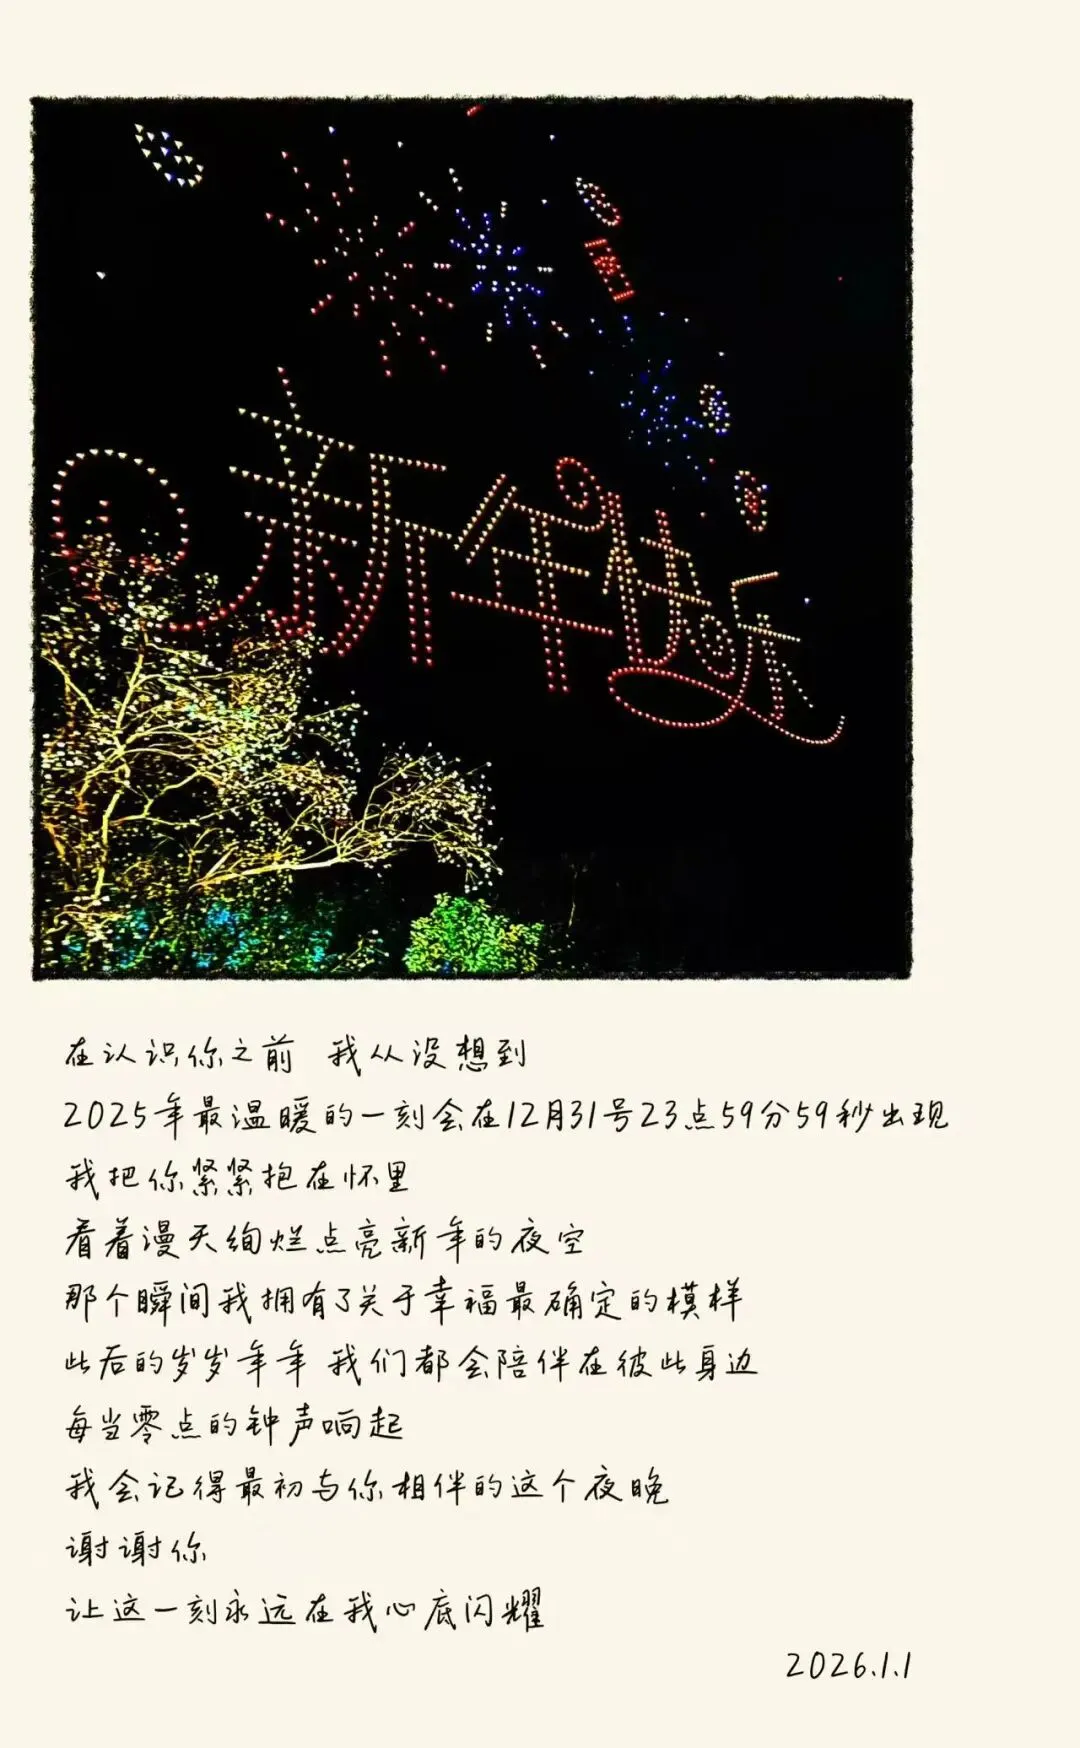 新年快乐
在认识你之前 我从没想到
2025年最温暖的一刻会在12月31号23点59分59秒出现
我把你紧紧抱在怀里
看着漫天绚烂点亮新年的夜空
那个瞬间我拥有了关于幸福最确定的模样
此后的岁岁年年 我们都会陪伴在彼此身边
每当零点的钟声响起
我会记得最初与你相伴的这个夜晚
谢谢你
让这一刻永远在我心底闪耀
2026.1.1